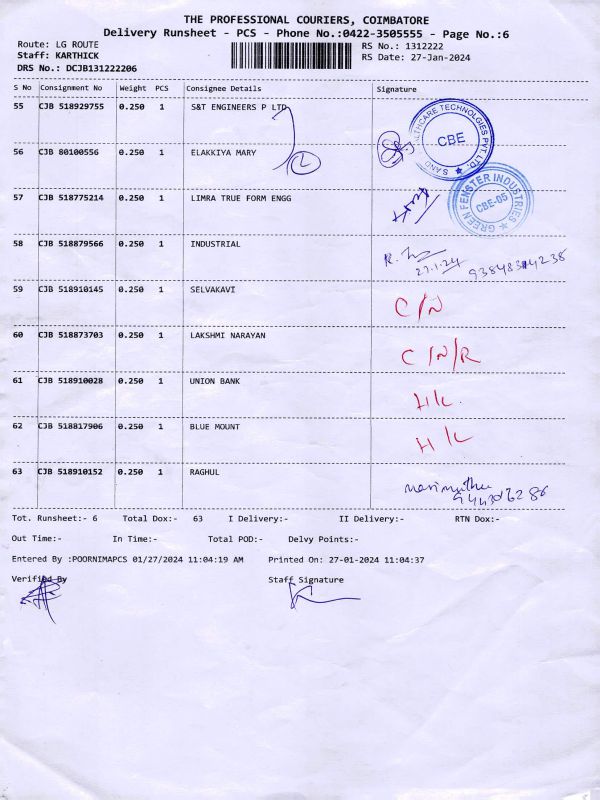 THE PROFESSIONAL COURIERS, COIMBATORE
Delivery Runsheet - PCS - Phone No.:0422-3505555 - Page No.:6
Route: LG ROUTE RS No.: 1312222
Staff: KARTHICK RS Date: 27-Jan-2024
DRS No.: DCJB131222206
S No Consignment No Weight PCS Consignee Details Signature
55 CJB 518929755 0.250 1 S&T ENGINEERS P LTD
HEALTHCARE TECHNOLGIES PVT. LTD. CBE
56 CJB 80100556 0.250 1 ELAKKIYA MARY L
57 CJB 518775214 0.250 1 LIMRA TRUE FORM ENGG
GREEN FENSTER INDUSTRIES CBE-05
58 CJB 518879566 0.250 1 INDUSTRIAL
27.1.24
59 CJB 518910145 0.250 1 SELVAKAVI C/N
60 CJB 518873703 0.250 1 LAKSHMI NARAYAN C/N/R
61 CJB 518910028 0.250 1 UNION BANK H/L
62 CJB 518817906 0.250 1 BLUE MOUNT H/L
63 CJB 518910152 0.250 1 RAGHUL marimuthu
Tot. Runsheet:- 6 Total Dox:- 63 I Delivery:- II Delivery:- RTN Dox:-
Out Time:- In Time:- Total POD:- Delvy Points:-
Entered By :POORNIMAPCS 01/27/2024 11:04:19 AM Printed On: 27-01-2024 11:04:37
Verified By Staff Signature